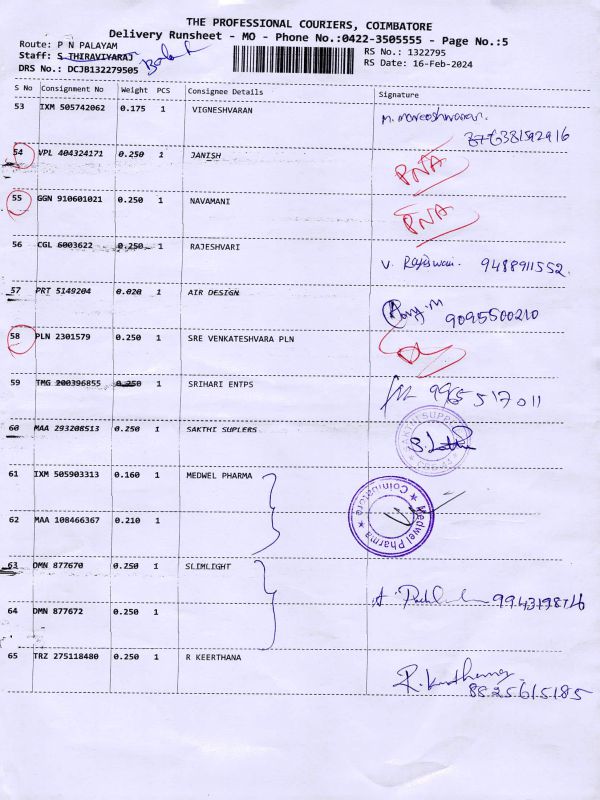 THE PROFESSIONAL COURIERS, COIMBATORE
Delivery Runsheet - MO - Phone No.:0422-3505555 - Page No.:5
Route: P N PALAYAM RS No.: 1322795
Staff: S THIRAVIYARAJ RS Date: 16-Feb-2024
DRS No.: DCJB132279505
S No Consignment No Weight PCS Consignee Details Signature
53 IXM 505742062 0.175 1 VIGNESHVARAN
54 VPL 404324171 0.250 1 JANISH PNA
55 GGN 910601021 0.250 1 NAVAMANI PNA
56 CGL 6003622 0.250 1 RAJESHVARI V. Rajeswari. 9488911552.
57 PRT 5149204 0.020 1 AIR DESIGN 9095500210
58 PLN 2301579 0.250 1 SRE VENKATESHVARA PLN
59 TMG 200396855 0.250 1 SRIHARI ENTPS 9965517011
60 MAA 293208513 0.250 1 SAKTHI SUPLERS
61 IXM 505903313 0.160 1 MEDWEL PHARMA Medwel Pharma ★ Coimbatore ★
62 MAA 108466367 0.210 1
63 DMN 877670 0.250 1 SLIMLIGHT
64 DMN 877672 0.250 1
65 TRZ 275118480 0.250 1 R KEERTHANA R. Keerthana
8825615185